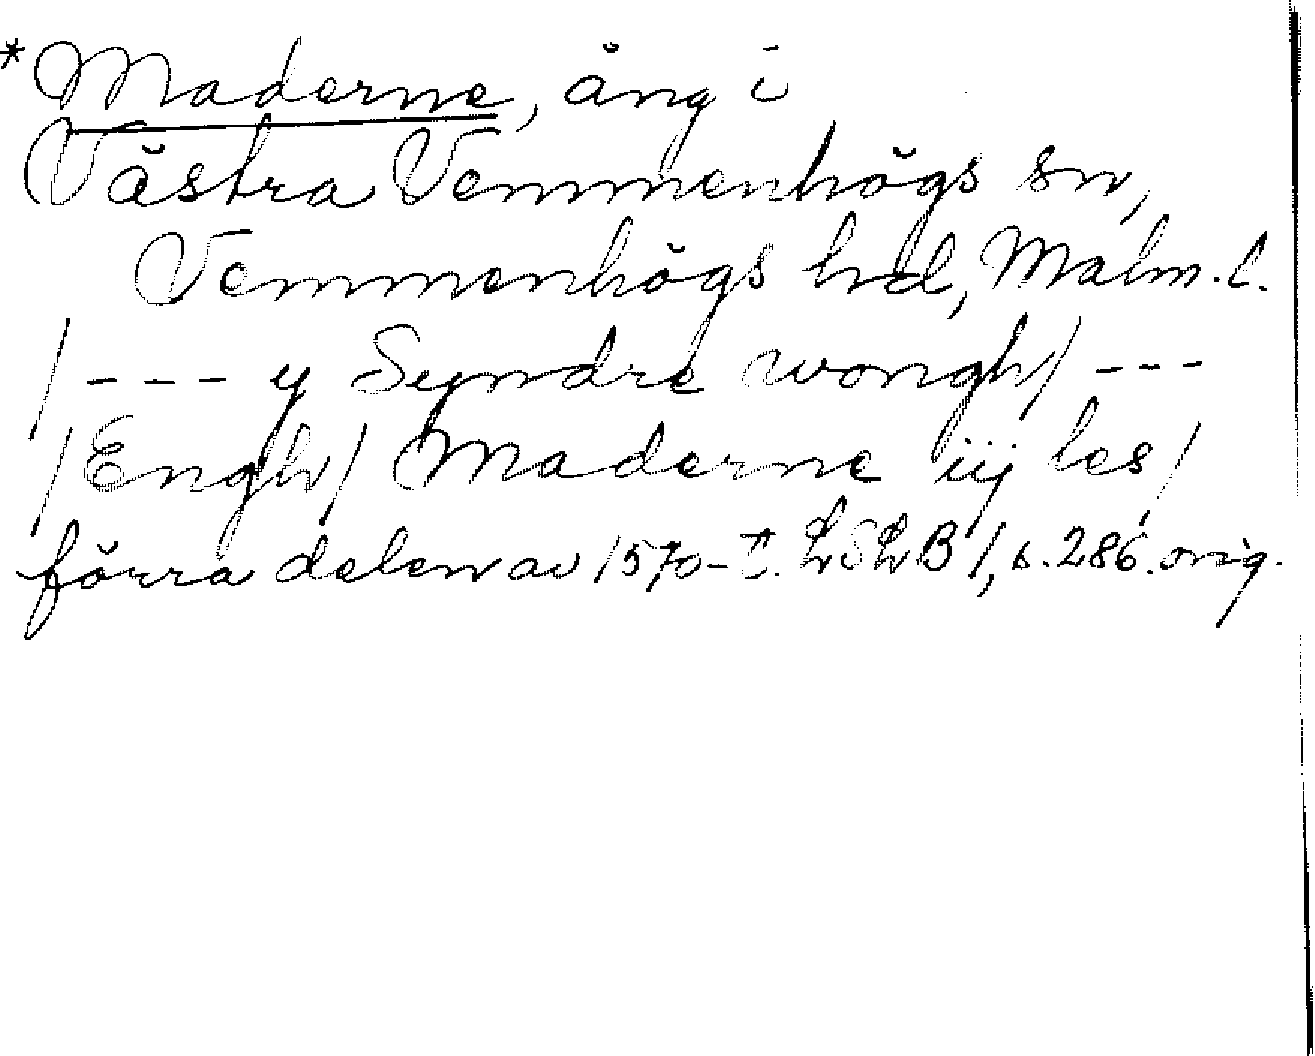 *Maderne, äng i
Västra Vemmenhögs sn,
Vemmenhögs hd, Malm. l.
/--- y Syndre wongh/ ---
/Engh/ Maderne iij les/
förra delen av 1570-t. LSLB 1, s. 286. orig.